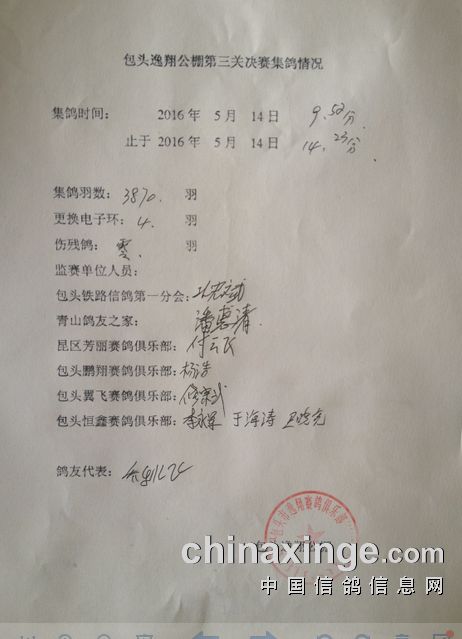 包头逸翔公棚第三关决赛集鸽情况
集鸽时间： 2016年 5月 14日 9.52分
止于 2016年 5月 14日 14.23分
集鸽羽数：3870. 羽
更换电子环：4. 羽
伤残鸽：零. 羽
监赛单位人员：
包头铁路信鸽第一分会：
青山鸽友之家：潘惠清
昆区芳丽赛鸽俱乐部：付云飞
包头鹏翔赛鸽俱乐部：杨浩
包头翼飞赛鸽俱乐部：
包头恒鑫赛鸽俱乐部：李永军 于海涛
鸽友代表：
包头市逸翔赛鸽俱乐部
chinaxinge.com
中国信鸽信息网